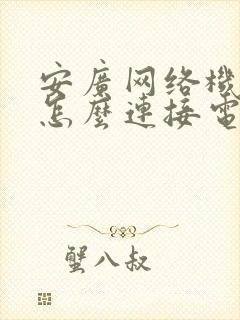 安廣网络機
怎麼連接電
蟹八叔